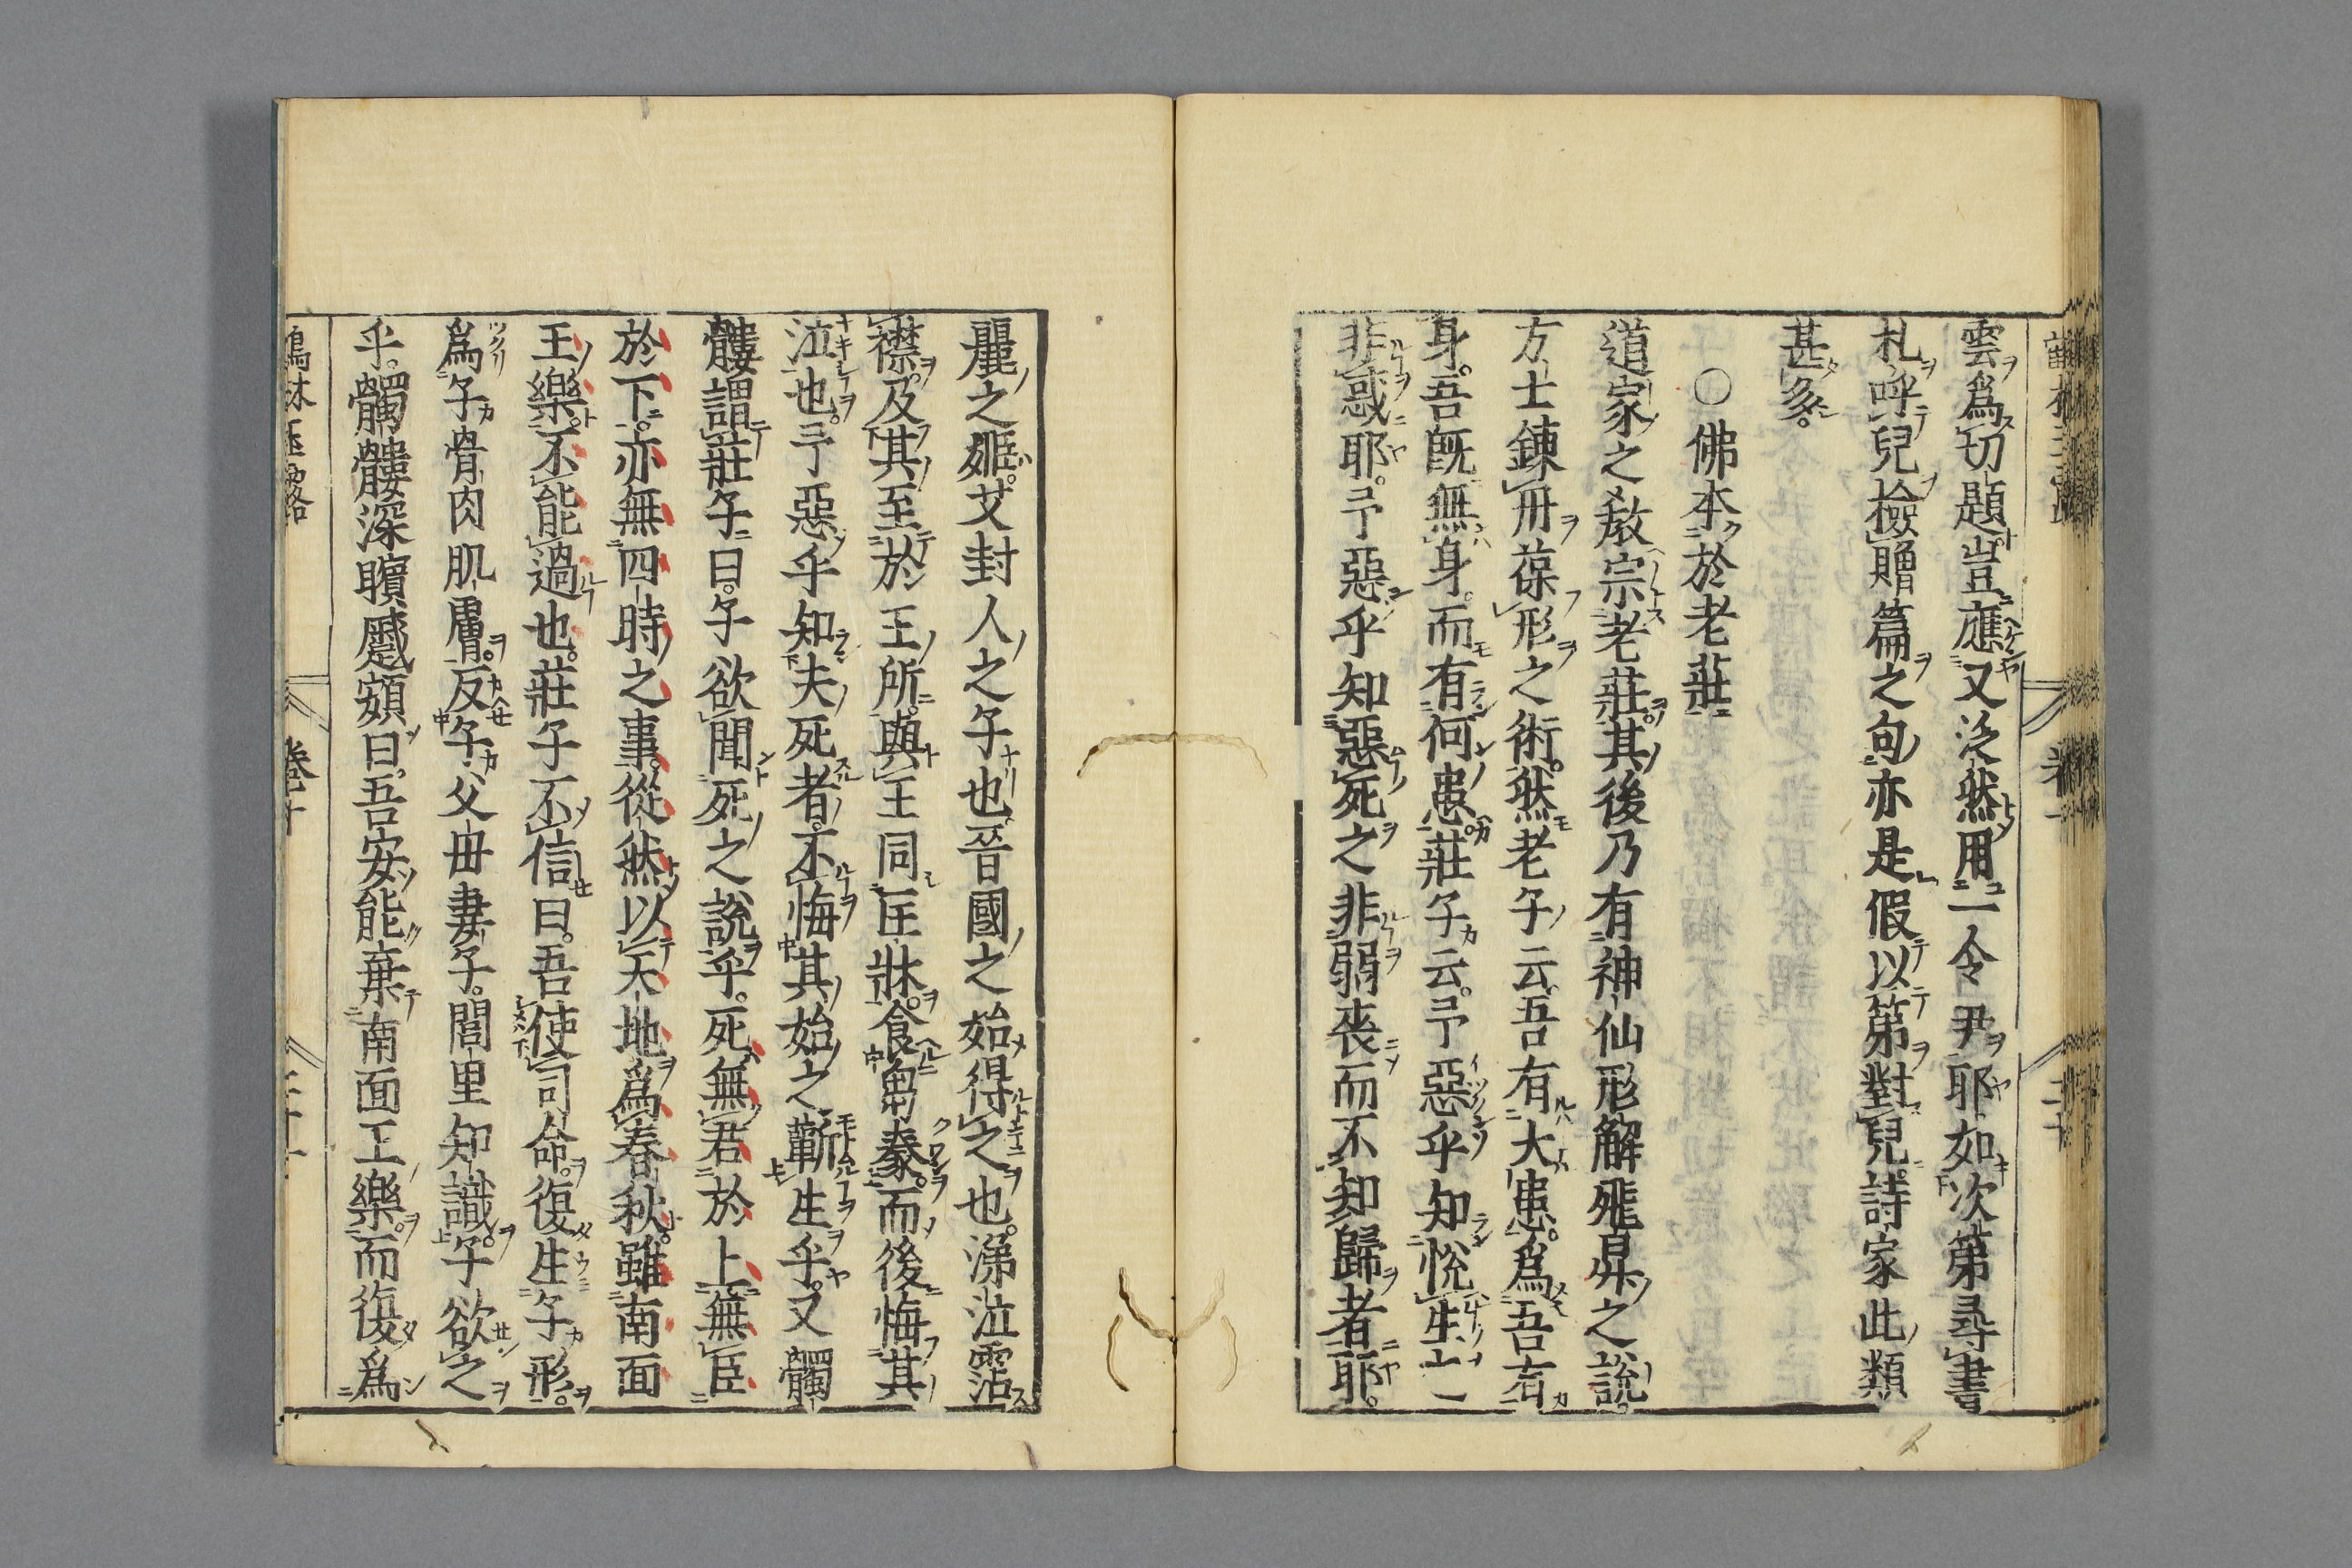 雲爲切題豈應又泛然用二令尹耶如次第尋書
札呼兒檢贈篇之句亦是假以第對兒詩家此類
甚多。
○佛本於老莊
道家之教宗老莊其後乃有神仙形解飛昇之說。
方士錬丹葆形之術。然老子云吾有大患。爲吾有
身。吾既無身。而有何患。莊子云。予惡乎知悅生之
非惑耶。予惡乎知惡死之非弱喪而不知歸者耶。
麗之姬。艾封人之子也。晉國之始得之也。涕泣霑
襟。及其至於王所。與王同匡牀。食芻豢。而後悔其
泣也。予惡乎知夫死者。不悔其始之蘄生乎。又髑
髏謂莊子曰。子欲聞死之說乎。死無君於上。無臣
於下。亦無四時之事。從然以天地爲春秋。雖南面
王樂。不能過也。莊子不信曰。吾使司命。復生子形。
爲子骨肉肌膚。反子父母妻子。閭里知識。子欲之
乎。髑髏深矉蹙頞曰。吾安能棄南面王樂。而復爲
卷十